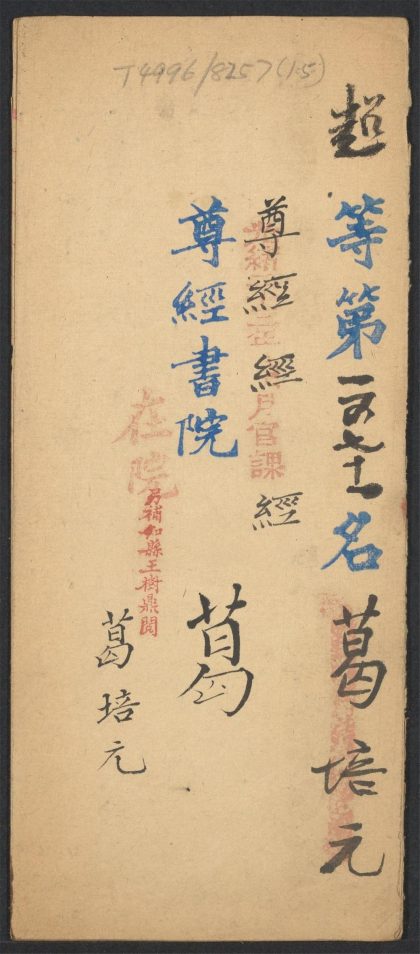 T4996/8257(1-5)
超等第一百七十一名葛培元
尊經經經
月官課
尊經書院
在院
另補知縣王樹鼎閱
葛培元